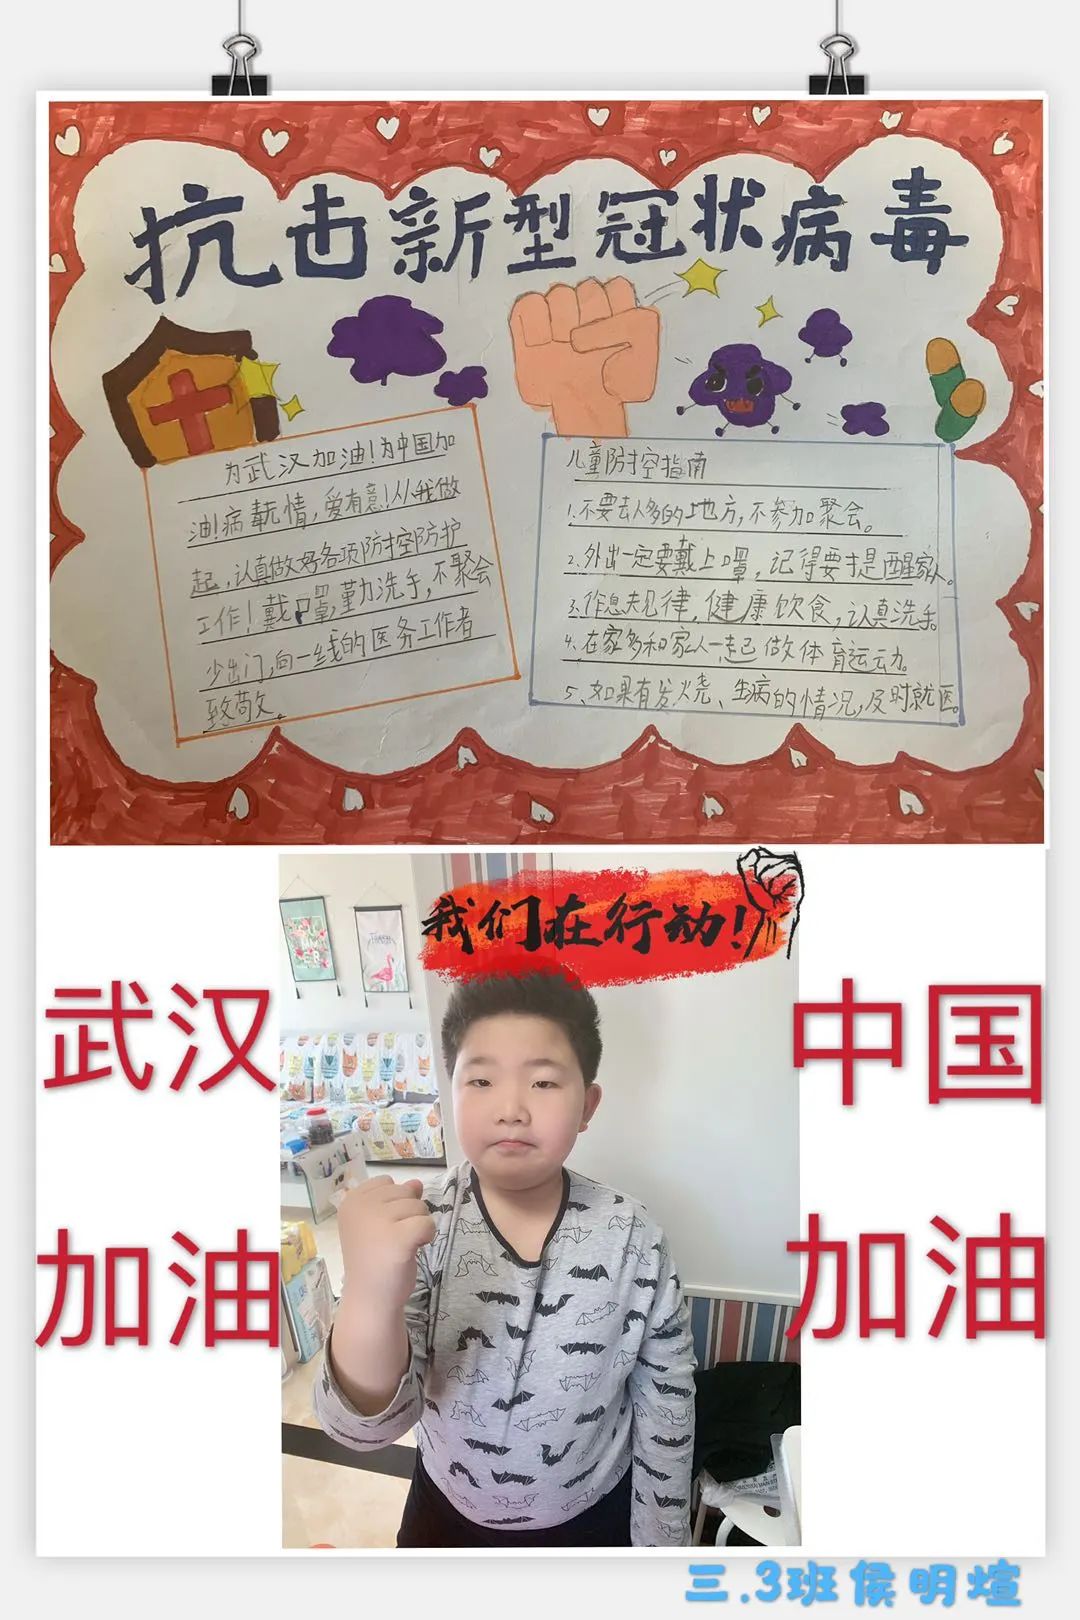 抗击新型冠状病毒
为武汉加油!为中国加
油!病毒无情,爱有意!从我做
起,认真做好各项防控防护
工作!戴口罩,勤洗手,不聚会
少出门,向一线的医务工作者
致敬。
儿童防控指南
1.不要去人多的地方,不参加聚会。
2.外出一定要戴上口罩,记得要提醒家人。
3.作息规律,健康饮食,认真洗手。
4.在家多和家人一起做体育运动。
5、如果有发烧、生病的情况,及时就医。
我们在行动!
武汉
加油
中国
加油
三.3班侯明煊